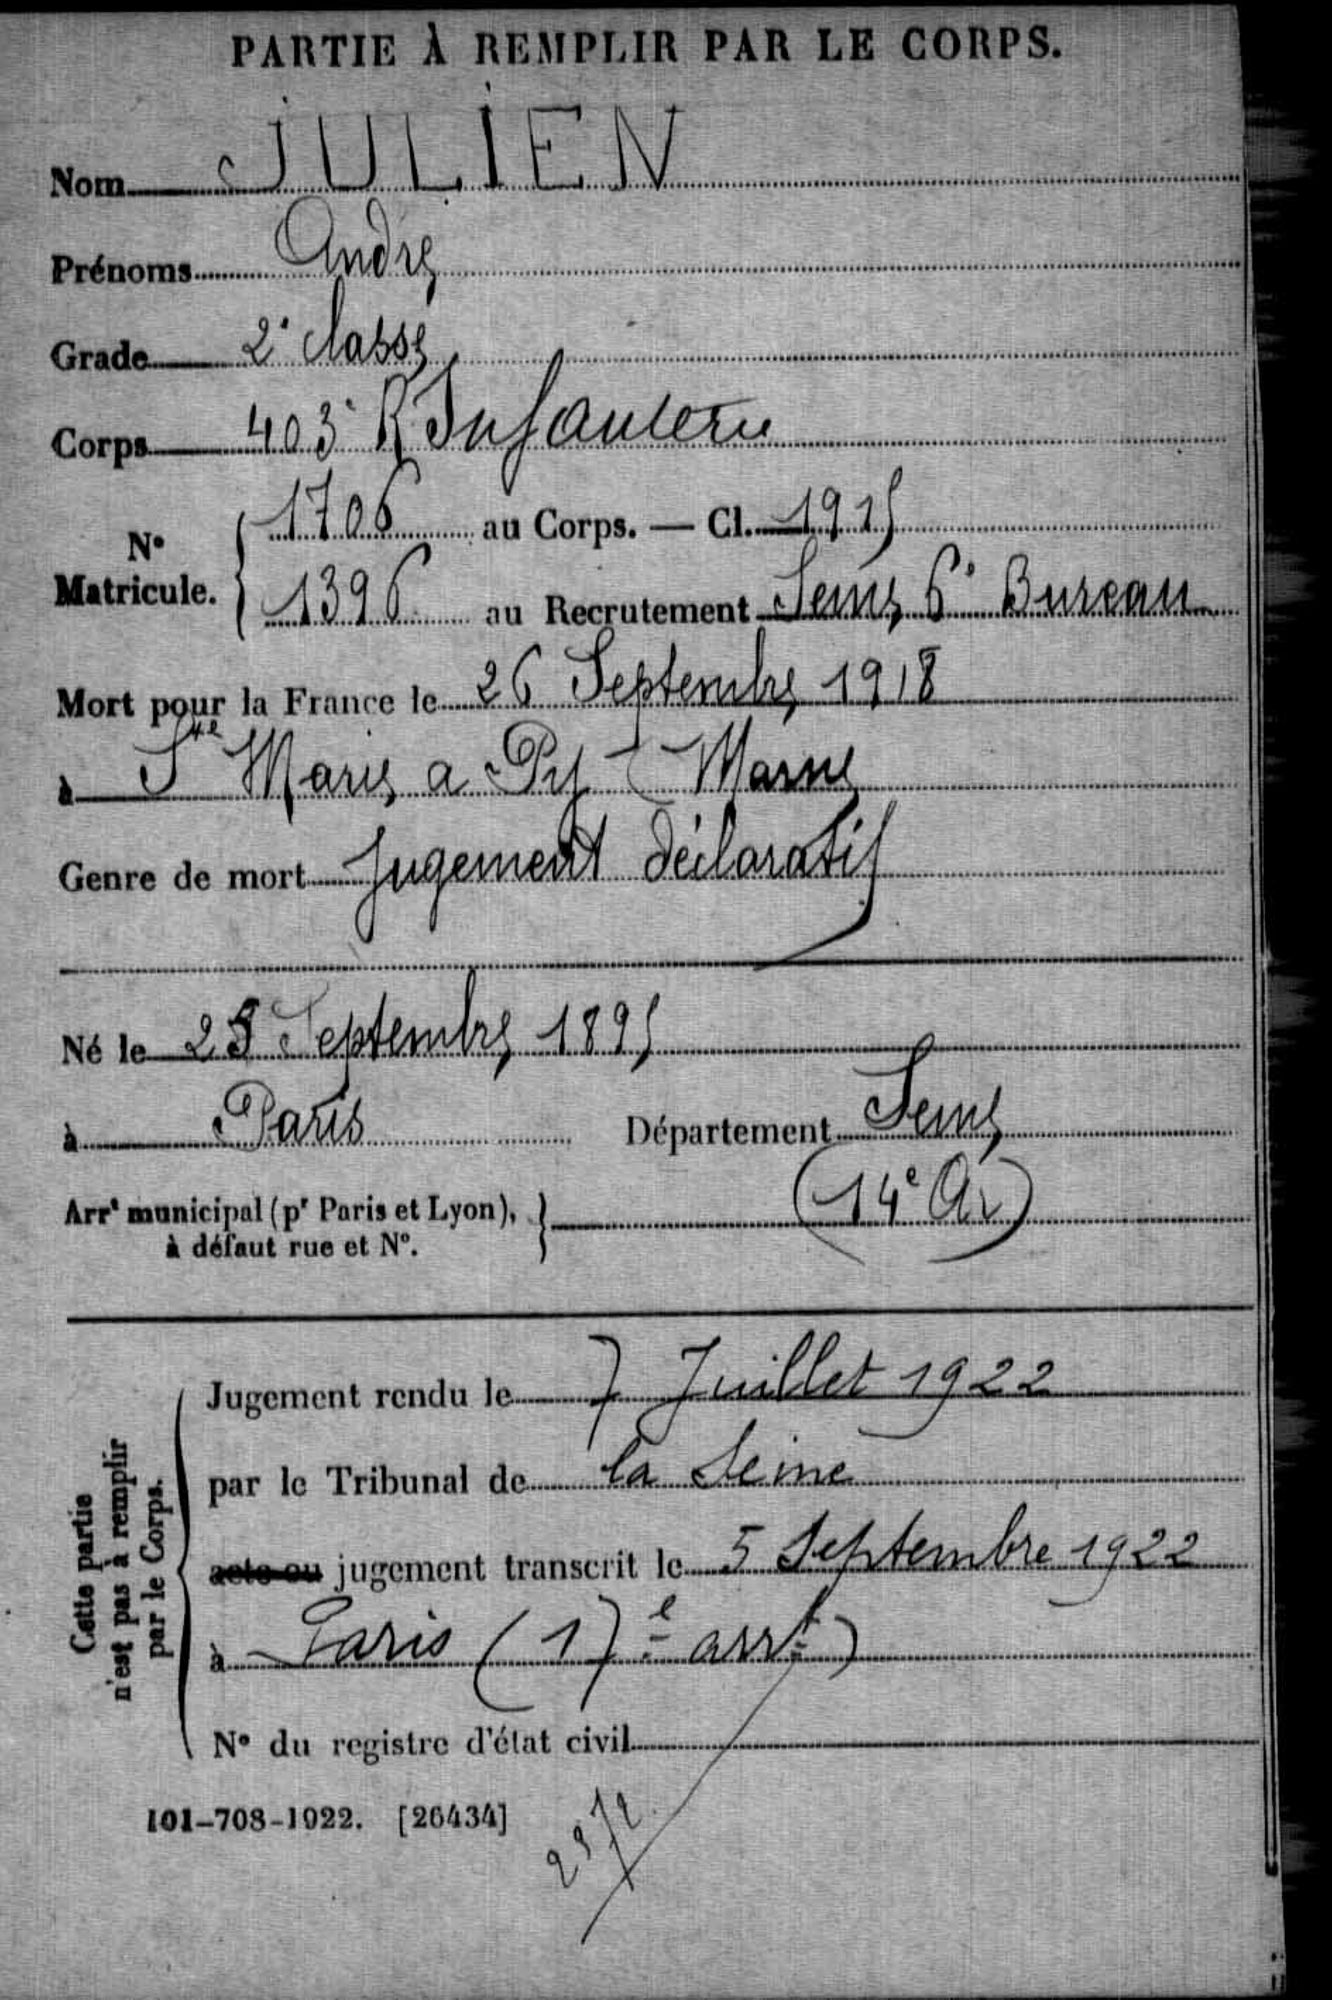 PARTIE À REMPLIR PAR LE CORPS.
Nom JULIEN
Prénoms André
Grade 2e Classe
Corps 403e R Infanterie
N° Matricule. { 1706 au Corps. — Cl. 1915
1396 au Recrutement Seine 6e Bureau
Mort pour la France le 26 Septembre 1918
à Ste Marie a Py (Marne
Genre de mort Jugement déclaratif
Né le 25 Septembre 1895
à Paris Département Seine
Arrt municipal (pr Paris et Lyon), } (14e Ar)
à défaut rue et N°.
Cette partie n'est pas à remplir par le Corps.
Jugement rendu le 7 Juillet 1922
par le Tribunal de la Seine
acte ou jugement transcrit le 5 Septembre 1922
à Paris (17e arrt)
N° du registre d'état civil
101-708-1922. [26434]